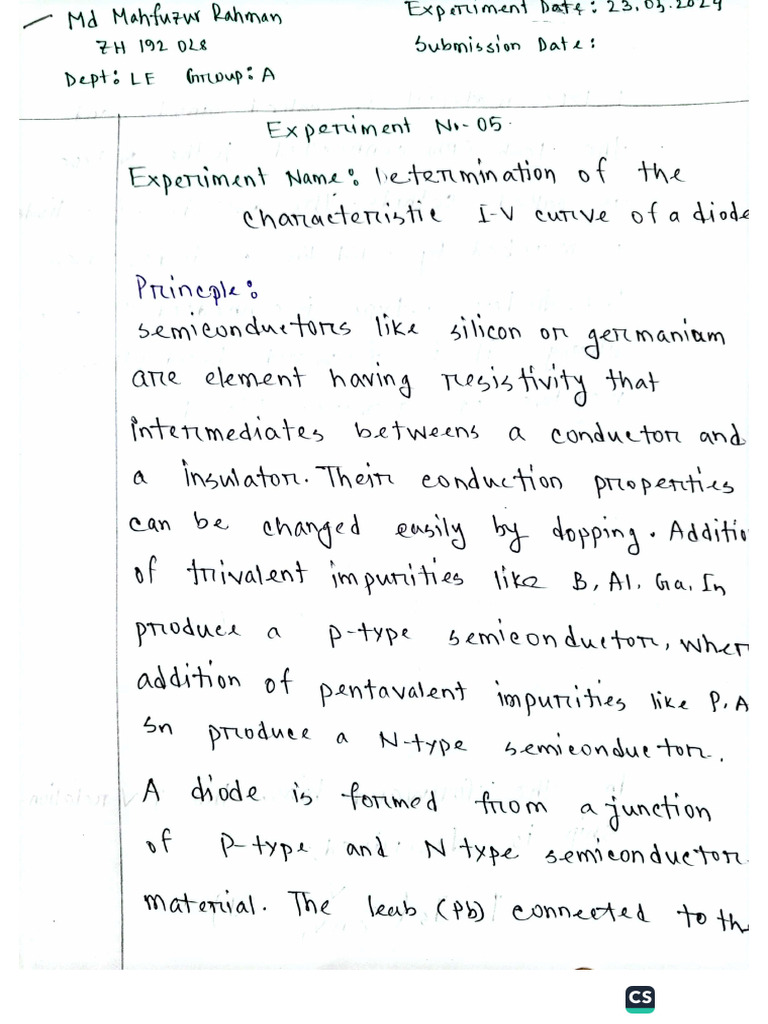 Md Mahfuzur Rahman
ZH 192 028
Dept: LE Group: A
Experiment Date: 23.05.2024
Submission Date:
Experiment No-05.
Experiment Name: Determination of the
characteristic I-V curve of a diode
Principle:
semiconductors like silicon or germanium
are element having resistivity that
intermediates betweens a conductor and
a insulator. Their conduction properties
can be changed easily by dopping. Additio
of trivalent impurities like B, Al, Ga, In
produce a p-type semiconductor, wher
addition of pentavalent impurities like P, A
Sn produce a N-type semiconductor.
A diode is formed from a junction
of P-type and N type semiconductor
material. The leab (Pb) connected to th
CS